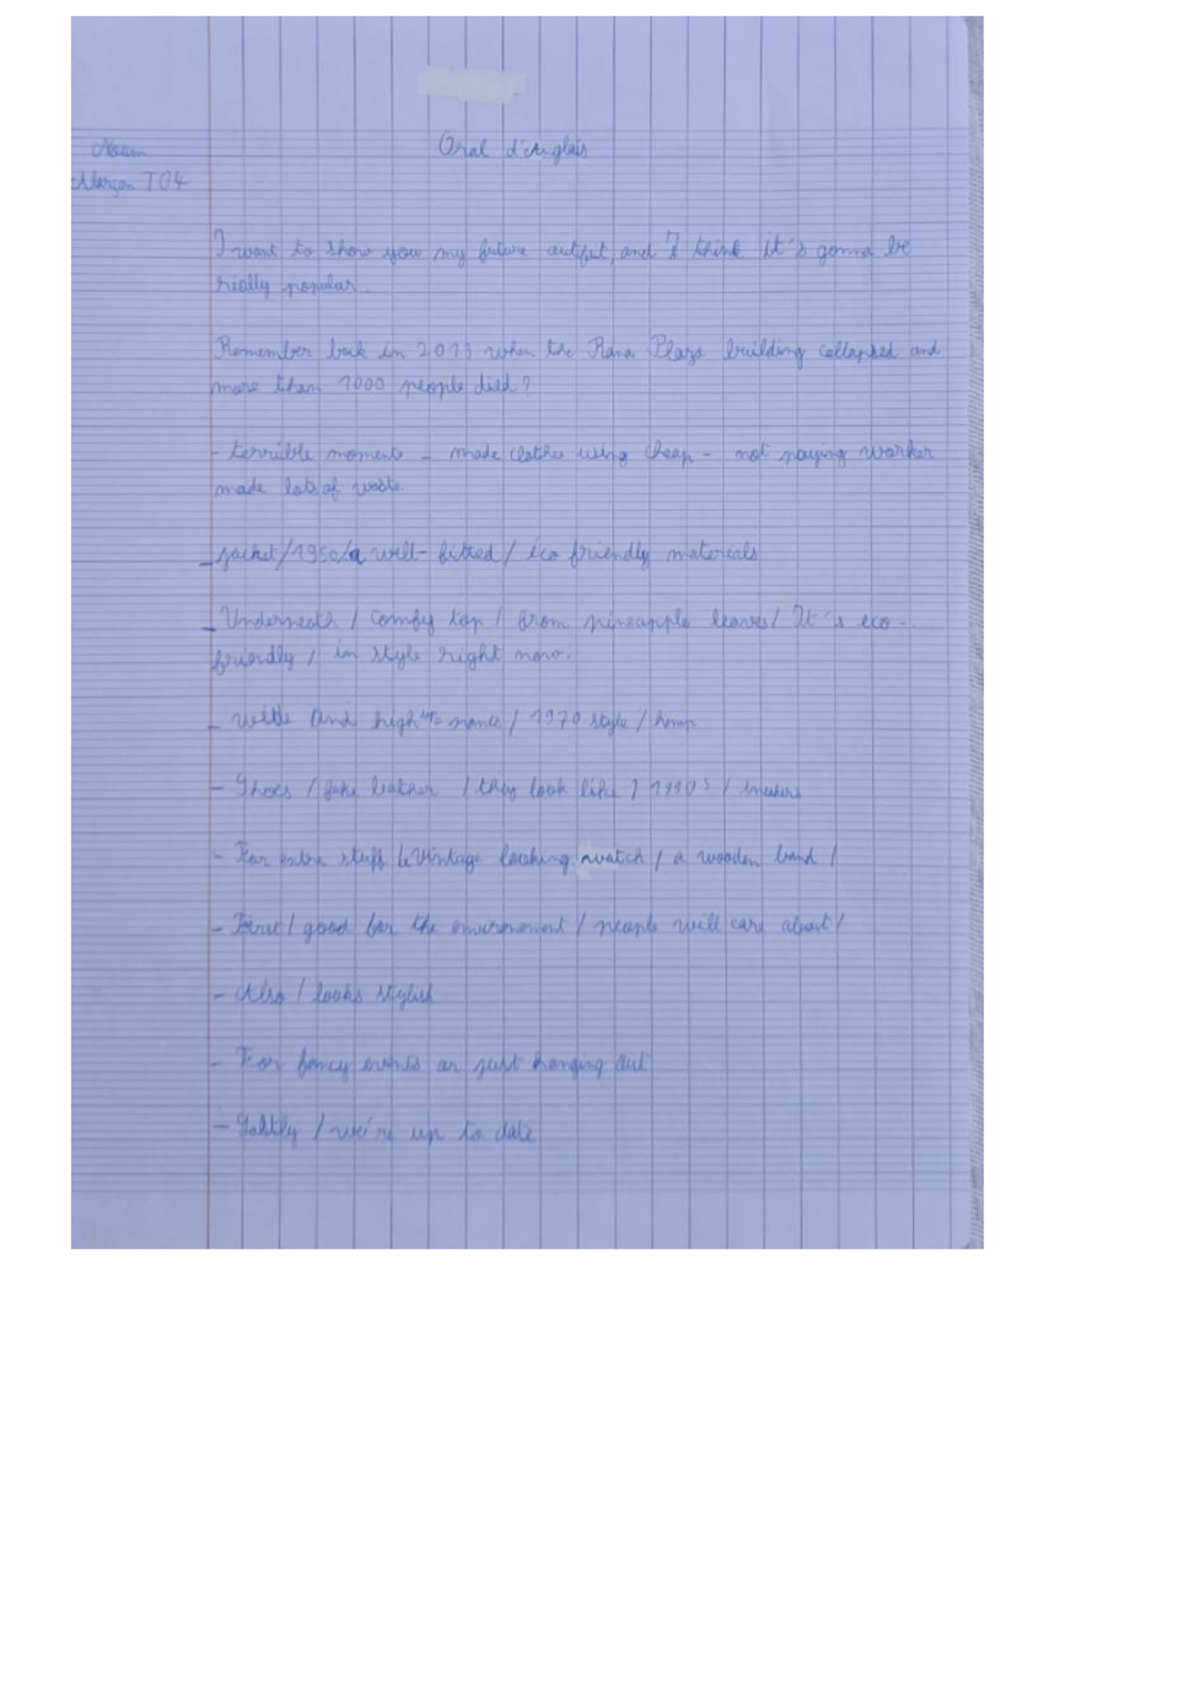 Oral d'Anglais
Noam
Marçon T04
I want to show you my future outfit, and I think it's gonna be
really popular.
Remember back in 2013 when the Rana Plaza building collapsed and
more than 1000 people died?
- terrible moments - made clothes using cheap - not paying worker
made lots of waste
- jacket/1950/a well-fitted / eco friendly materials
- Underneath / comfy top / from pineapple leaves / It's eco-
friendly / in style right now.
- and high / 1970 style / hemp
- Shoes / fake leather / they look like / 1990s / sneakers
- For extra stuff / vintage looking watch / a wooden band /
- / good for the environment / people will care about /
- Also / looks stylish
- For fancy events or just hanging out
- Lastly / we're up to date